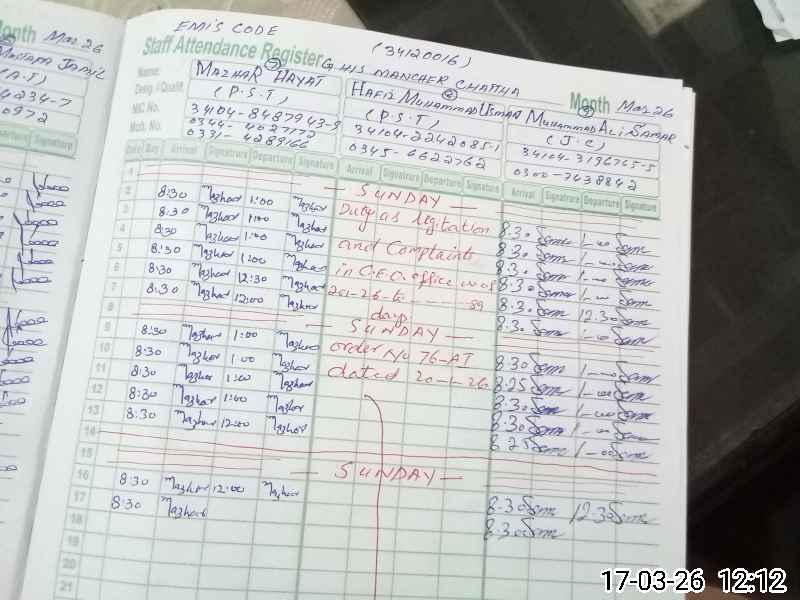 Month Mar. 26
(A.T)
4234-7
0972
Departure Signature
EMIS CODE (34120016)
Staff Attendance Register GHS MANCHER CHATTHA Month Mar 26
Name: MAZHAR HAYAT HAFIZ MUHAMMAD USMAN MUHAMMAD ALI SAMAR
Desig. / Qualif. (P.S.T) (P.S.T) (J.C)
NIC No. 34104-8487943-9 34104-2242085-1 34104-3196765-5
Mob. No. 0344-4027172 0345-6622762 0300-7438842
0331-4289166
Date Day Arrival Signature Departure Signature Arrival Signature Departure Signature Arrival Signature Departure Signature
1 — SUNDAY —
2 8:30 Mazhar 1:00 Mazhar Duty as legitation 8.30 1-00
3 8:30 Mazhar 1:00 Mazhar 8.30 1-00
4 8:30 Mazhar 1:00 Mazhar and Complaints 8.30 1-00
5 8:30 Mazhar 1:00 Mazhar in C.E.O office w.e.f 8.30 1-00
6 8:30 Mazhar 12:30 Mazhar 8.30 12.30
7 8:30 Mazhar 12:00 Mazhar days 8.30
8 — SUNDAY —
9 8:30 Mazhar 1:00 Mazhar order No 76-AT 8.30 1-00
10 8:30 Mazhar 1:00 Mazhar dated 20-1-26 8.25 1-00
11 8:30 Mazhar 1:00 Mazhar 8.30 1-00
12 8:30 Mazhar 1:00 Mazhar 8.30 1-00
13 8:30 Mazhar 12:00 Mazhar 8.25 1-00
14
15 — SUNDAY —
16 8:30 Mazhar 12:00 Mazhar 8.30 12.30
17 8:30 Mazhar 8.30
18
19
20
21
17-03-26 12:12